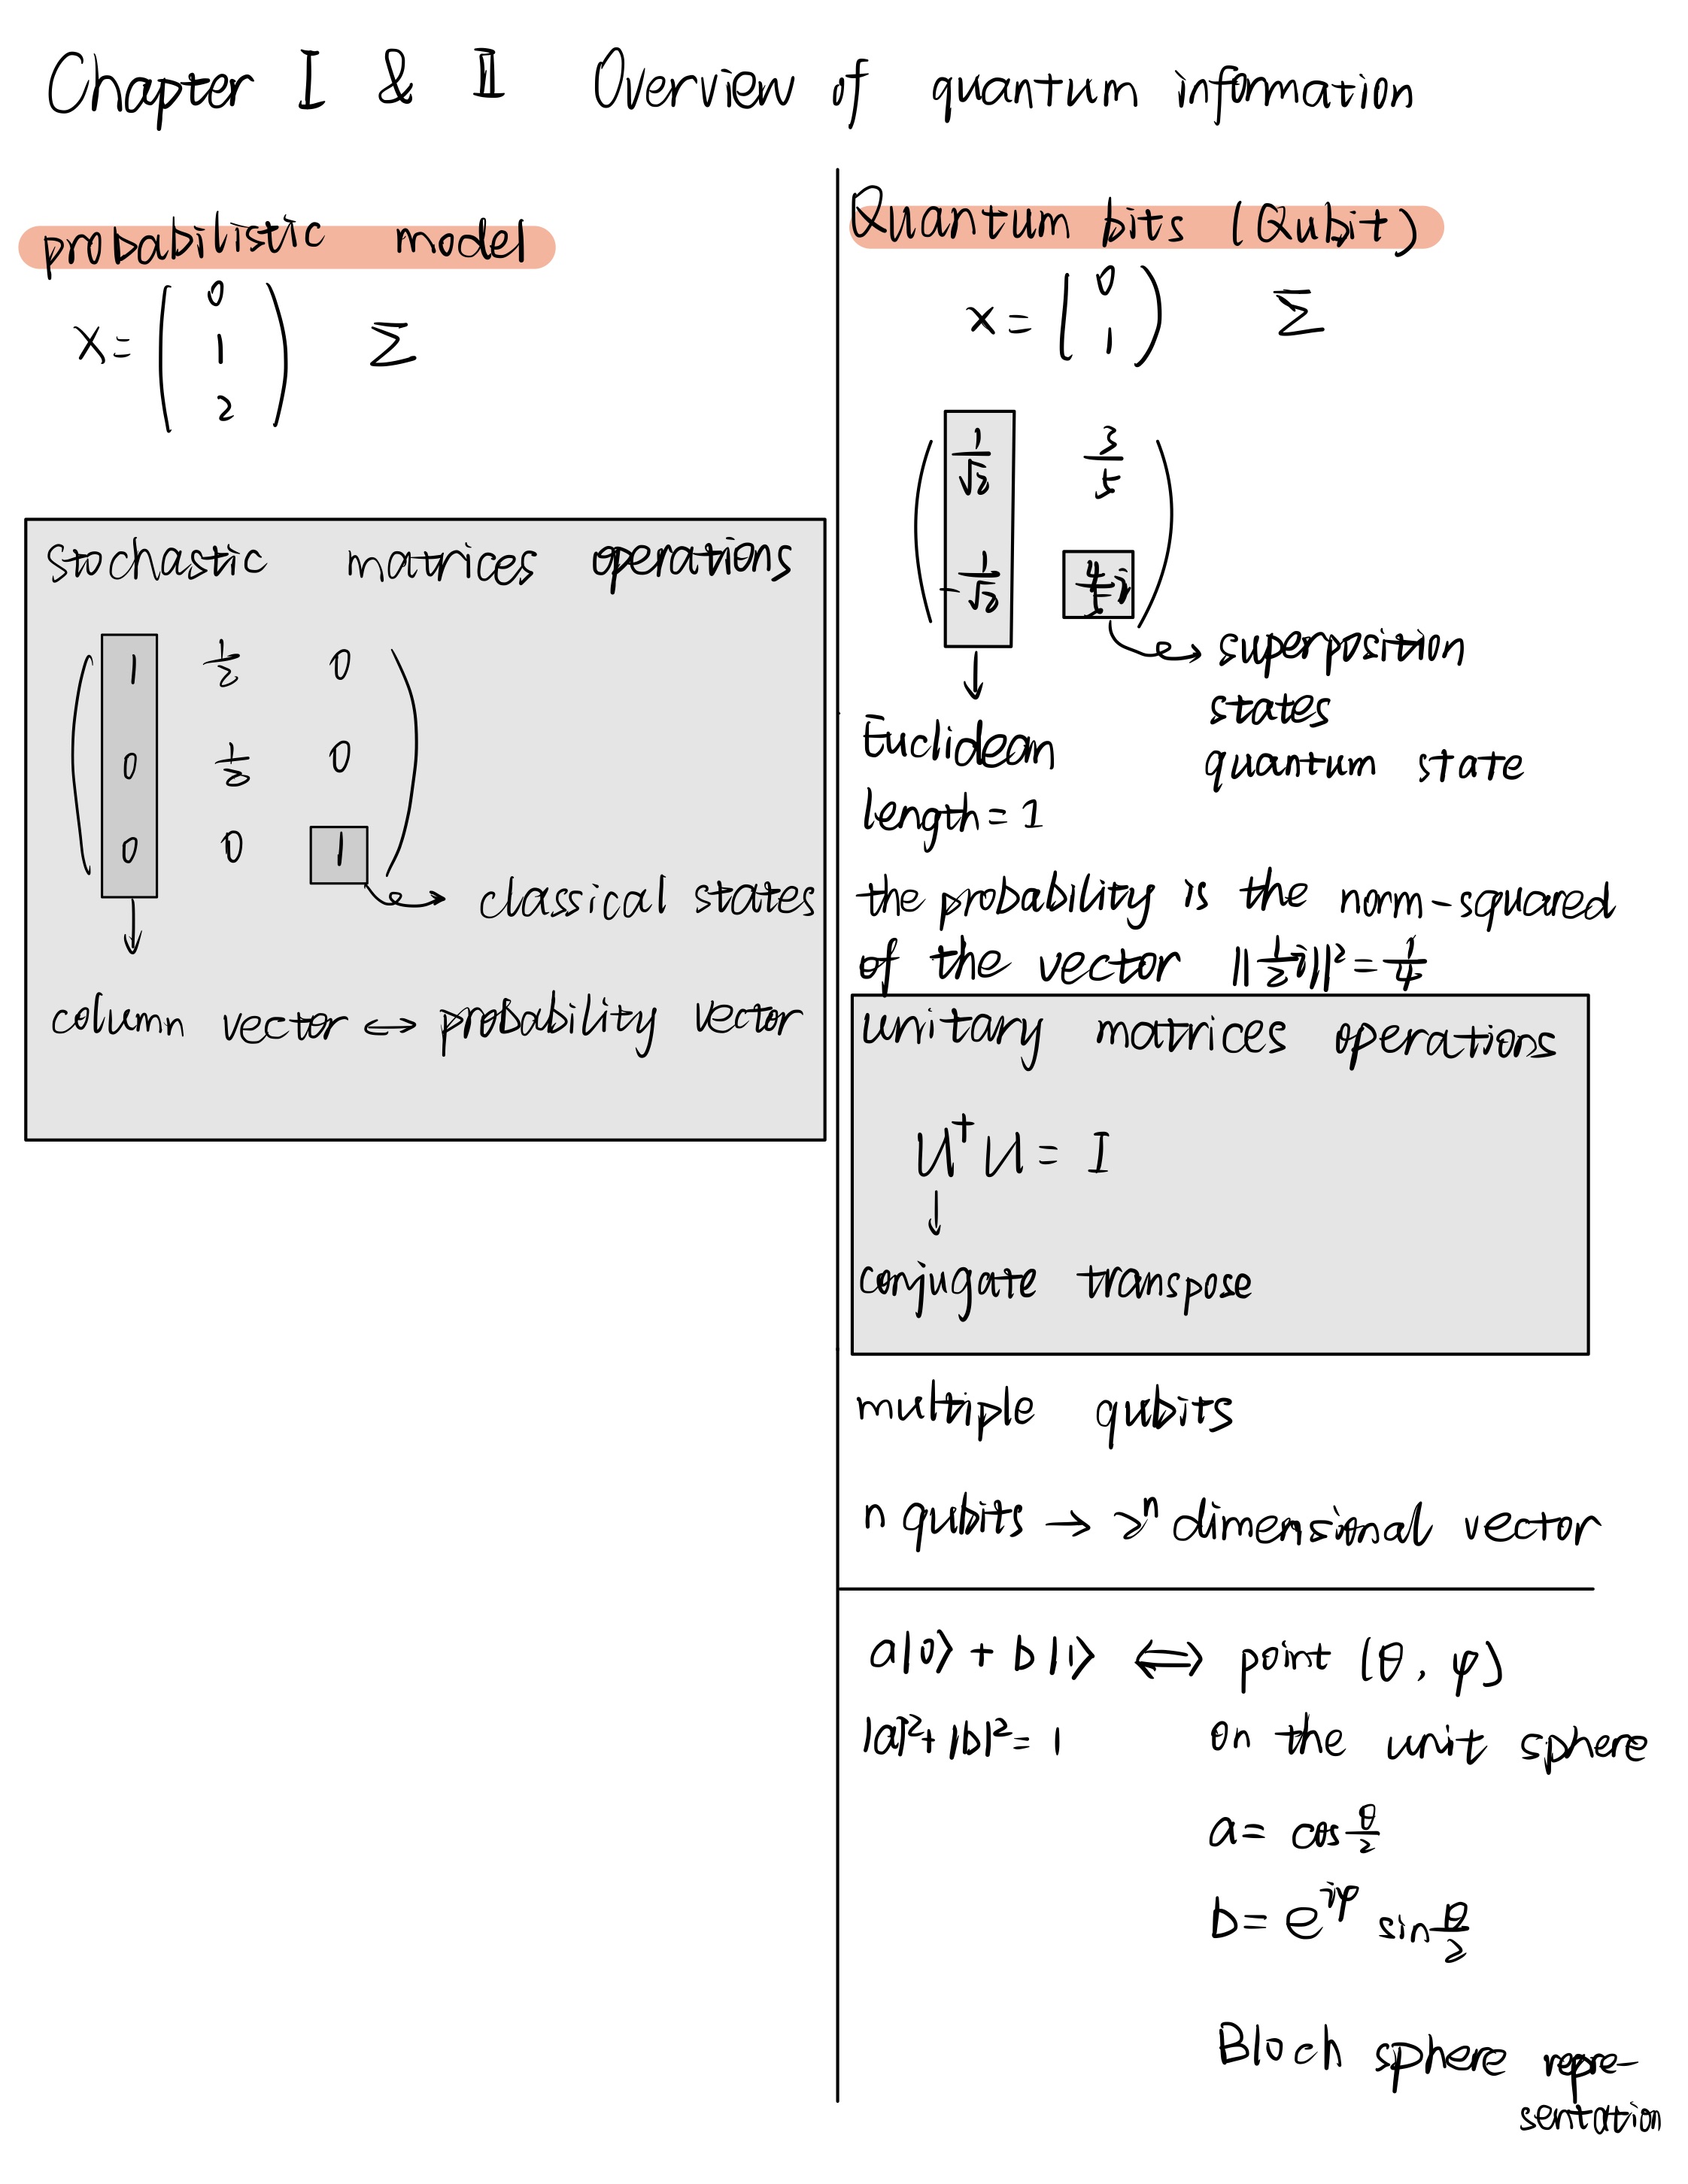 Chapter I & II Overview of quantum information
probabilistic model
X = ( 0
1
2 ) Σ
stochastic matrices operations
( 1 1/2 0
0 1/2 0
0 0 1 )
classical states
column vector ↔ probability vector
Quantum bits (Qubit)
X = ( 0
1 ) Σ
( 1/√2 3/5
-1/√2 4/5 i )
superposition
states
quantum state
Euclidean
length = 1
the probability is the norm-squared
of the vector ||1/2 i||² = 1/4
unitary matrices operations
U†U = I
conjugate transpose
multiple qubits
n qubits → 2ⁿ dimensional vector
a|0⟩ + b|1⟩ ⟺ point (θ, φ)
|a|² + |b|² = 1 on the unit sphere
a = cos θ/2
b = e^{iφ} sin θ/2
Bloch sphere repre-
sentation